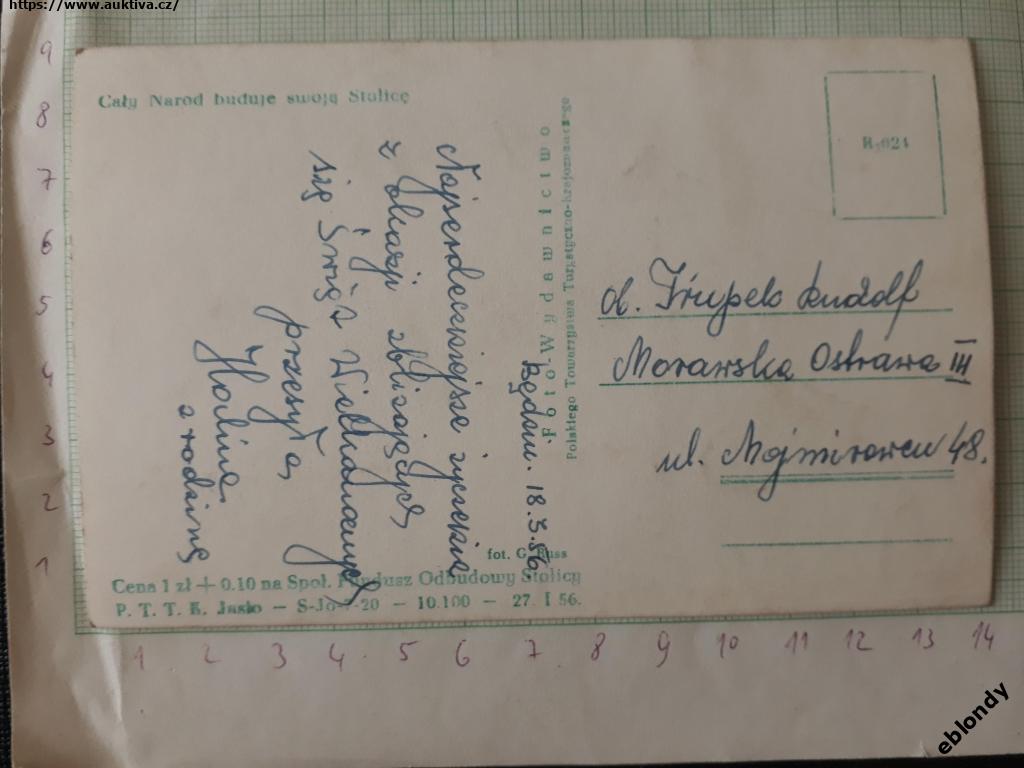 https://www.auktiva.cz/
Cały Naród buduje swoją Stolicę
Będzin. 18.3.56
Najserdeczniejsze życzenia
z okazji zbliżających
się Świąt Wielkanocnych
przesyła
Halina
z rodziną
Foto-Wydawnictwo
Polskiego Towarzystwa Turystyczno-krajoznawczego
R-024
Rudolf
Morawska Ostrawa III
ul. Mojmirowcu 48.
fot. G. Russ
Cena 1 zł + 0.10 na Społ. Fundusz Odbudowy Stolicy
P. T. T. K. Jasło — S-Jo-7-20 — 10.100 — 27. I 56.
9
8
7
6
5
4
3
2
1
1 2 3 4 5 6 7 8 9 10 11 12 13 14
eblondy